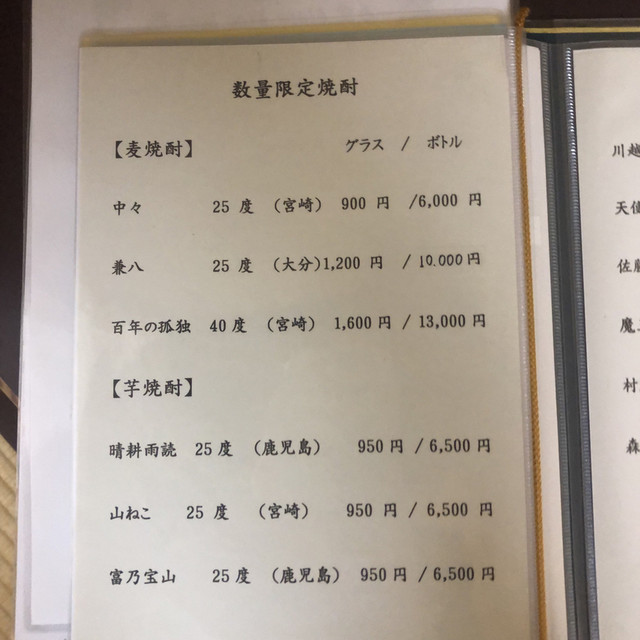 数量限定焼酎
【麦焼酎】 グラス / ボトル
中々 25度 (宮崎) 900円 /6,000円
兼八 25度 (大分)1,200円 / 10.000円
百年の孤独 40度 (宮崎) 1,600円 / 13,000円
【芋焼酎】
晴耕雨読 25度 (鹿児島) 950円 / 6,500円
山ねこ 25度 (宮崎) 950円 / 6,500円
富乃宝山 25度 (鹿児島) 950円 / 6,500円
川越
天使
佐藤
魔
村
森